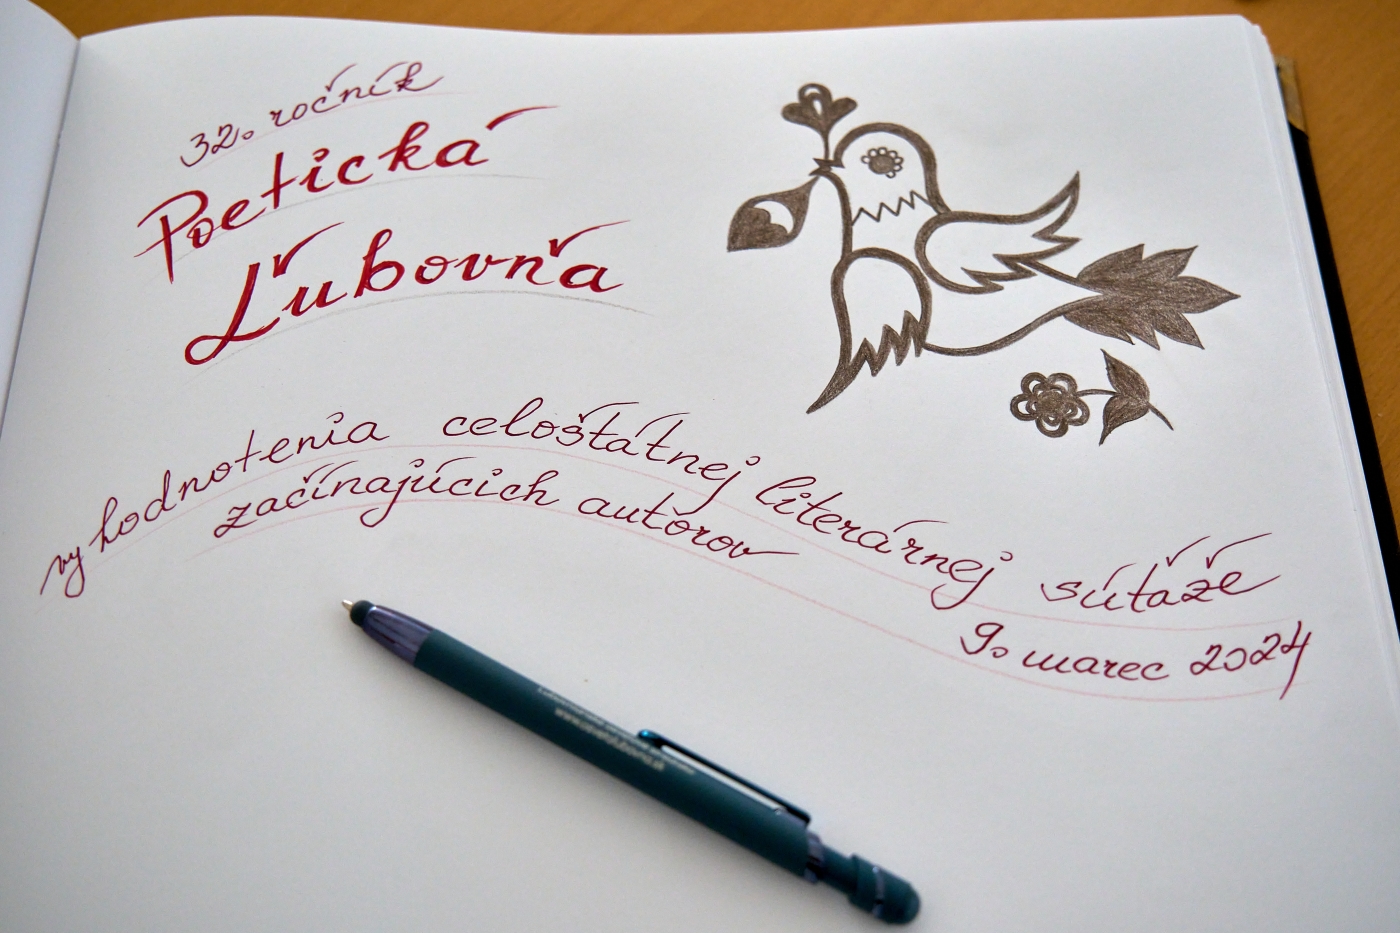 32. ročník
Poetická
Ľubovňa
vyhodnotenia celoštátnej literárnej súťaže
začínajúcich autorov
9. marec 2024